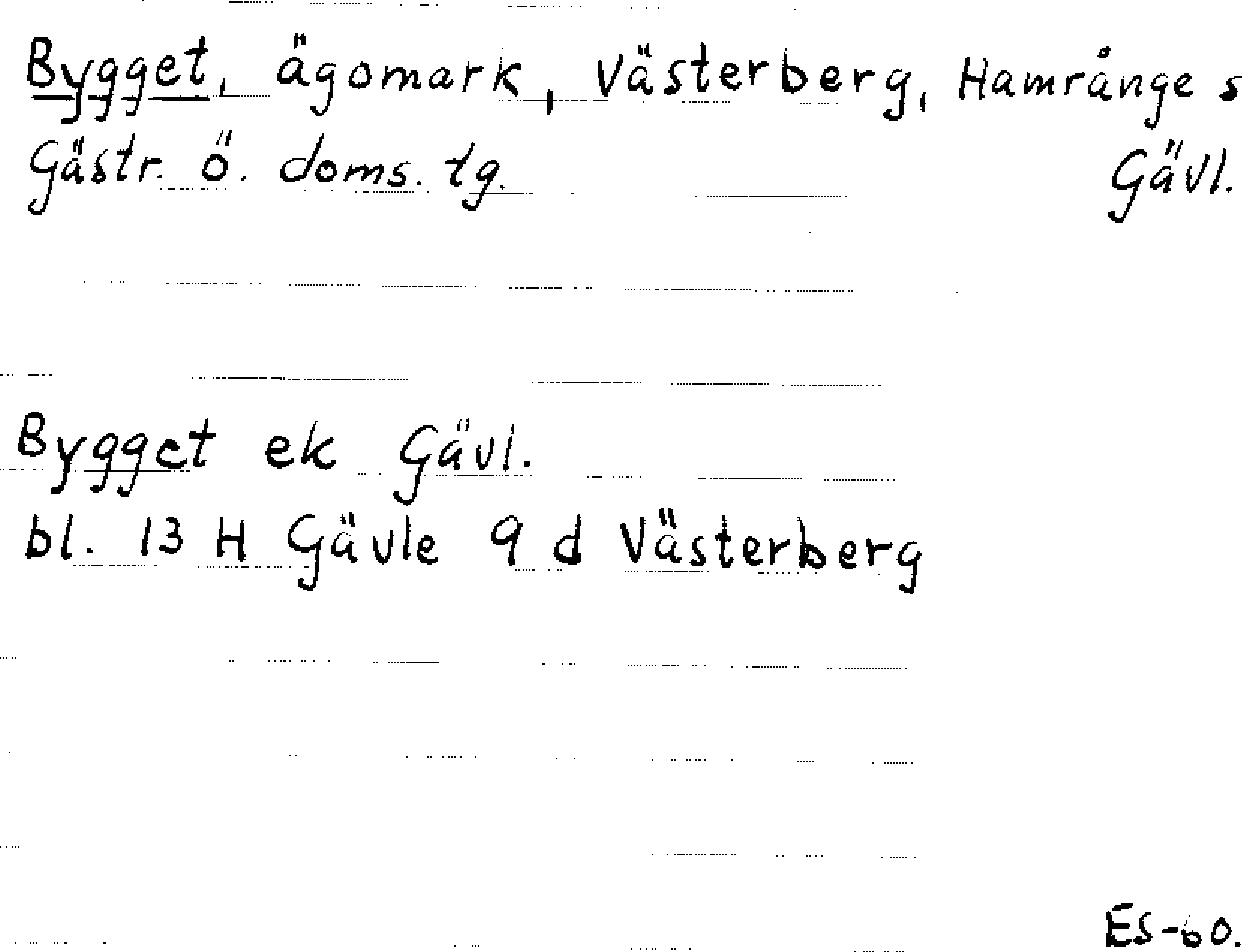 Bygget, ägomark, Västerberg, Hamrånge s
Gästr. ö. doms. tg. Gävl.
Bygget ek Gävl.
bl. 13 H Gävle 9 d Västerberg
ES-60.